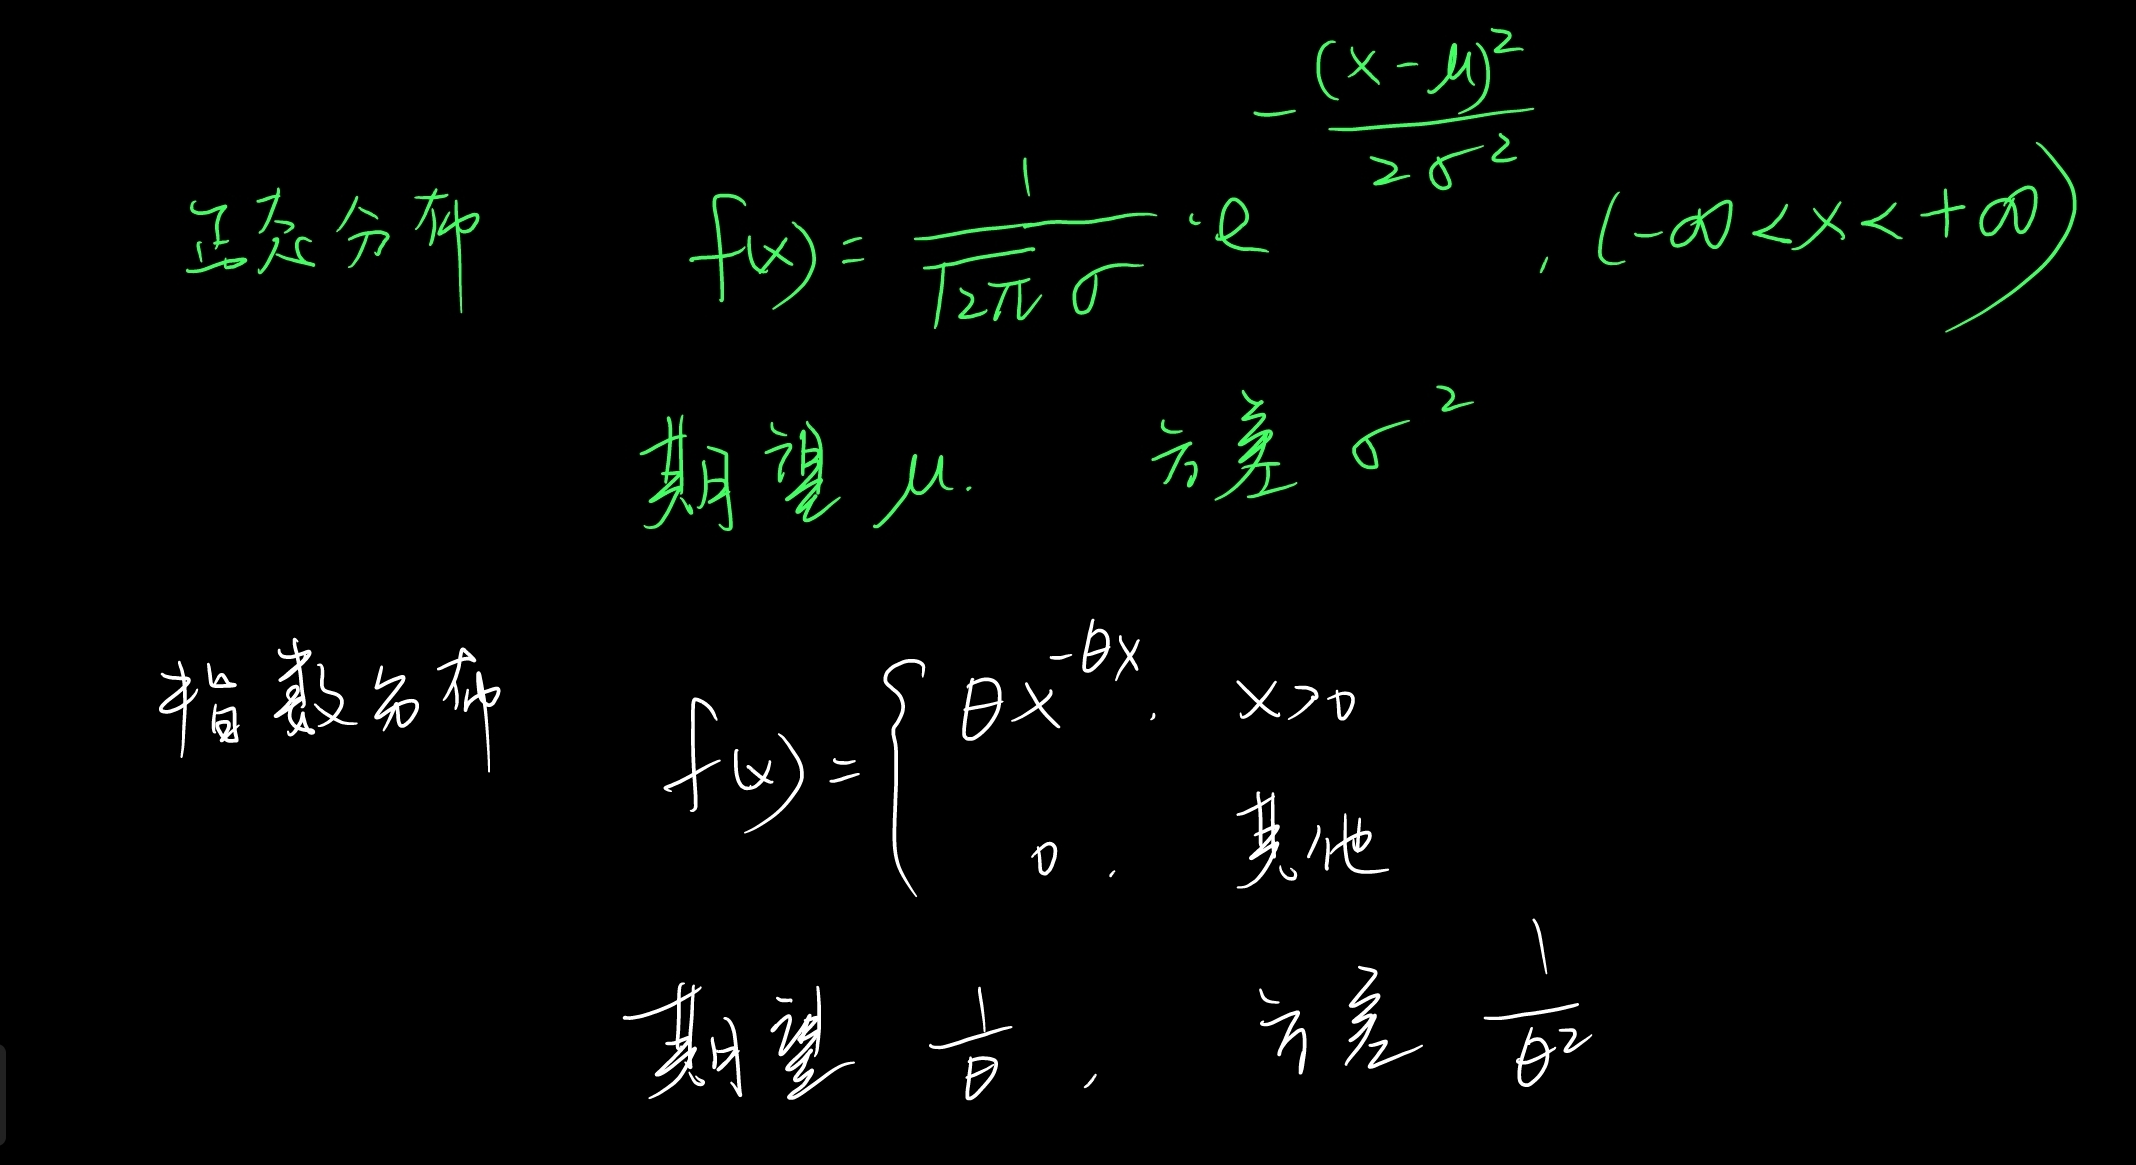 正态分布 f(x) = \frac{1}{\sqrt{2π} σ} · e^{-\frac{(x-μ)^2}{2σ^2}} , (-∞ < x < +∞)
期望 μ. 方差 σ^2
指数分布 f(x) = { θx^{-θx} , x>0
0 , 其他
期望 \frac{1}{θ} , 方差 \frac{1}{θ^2}